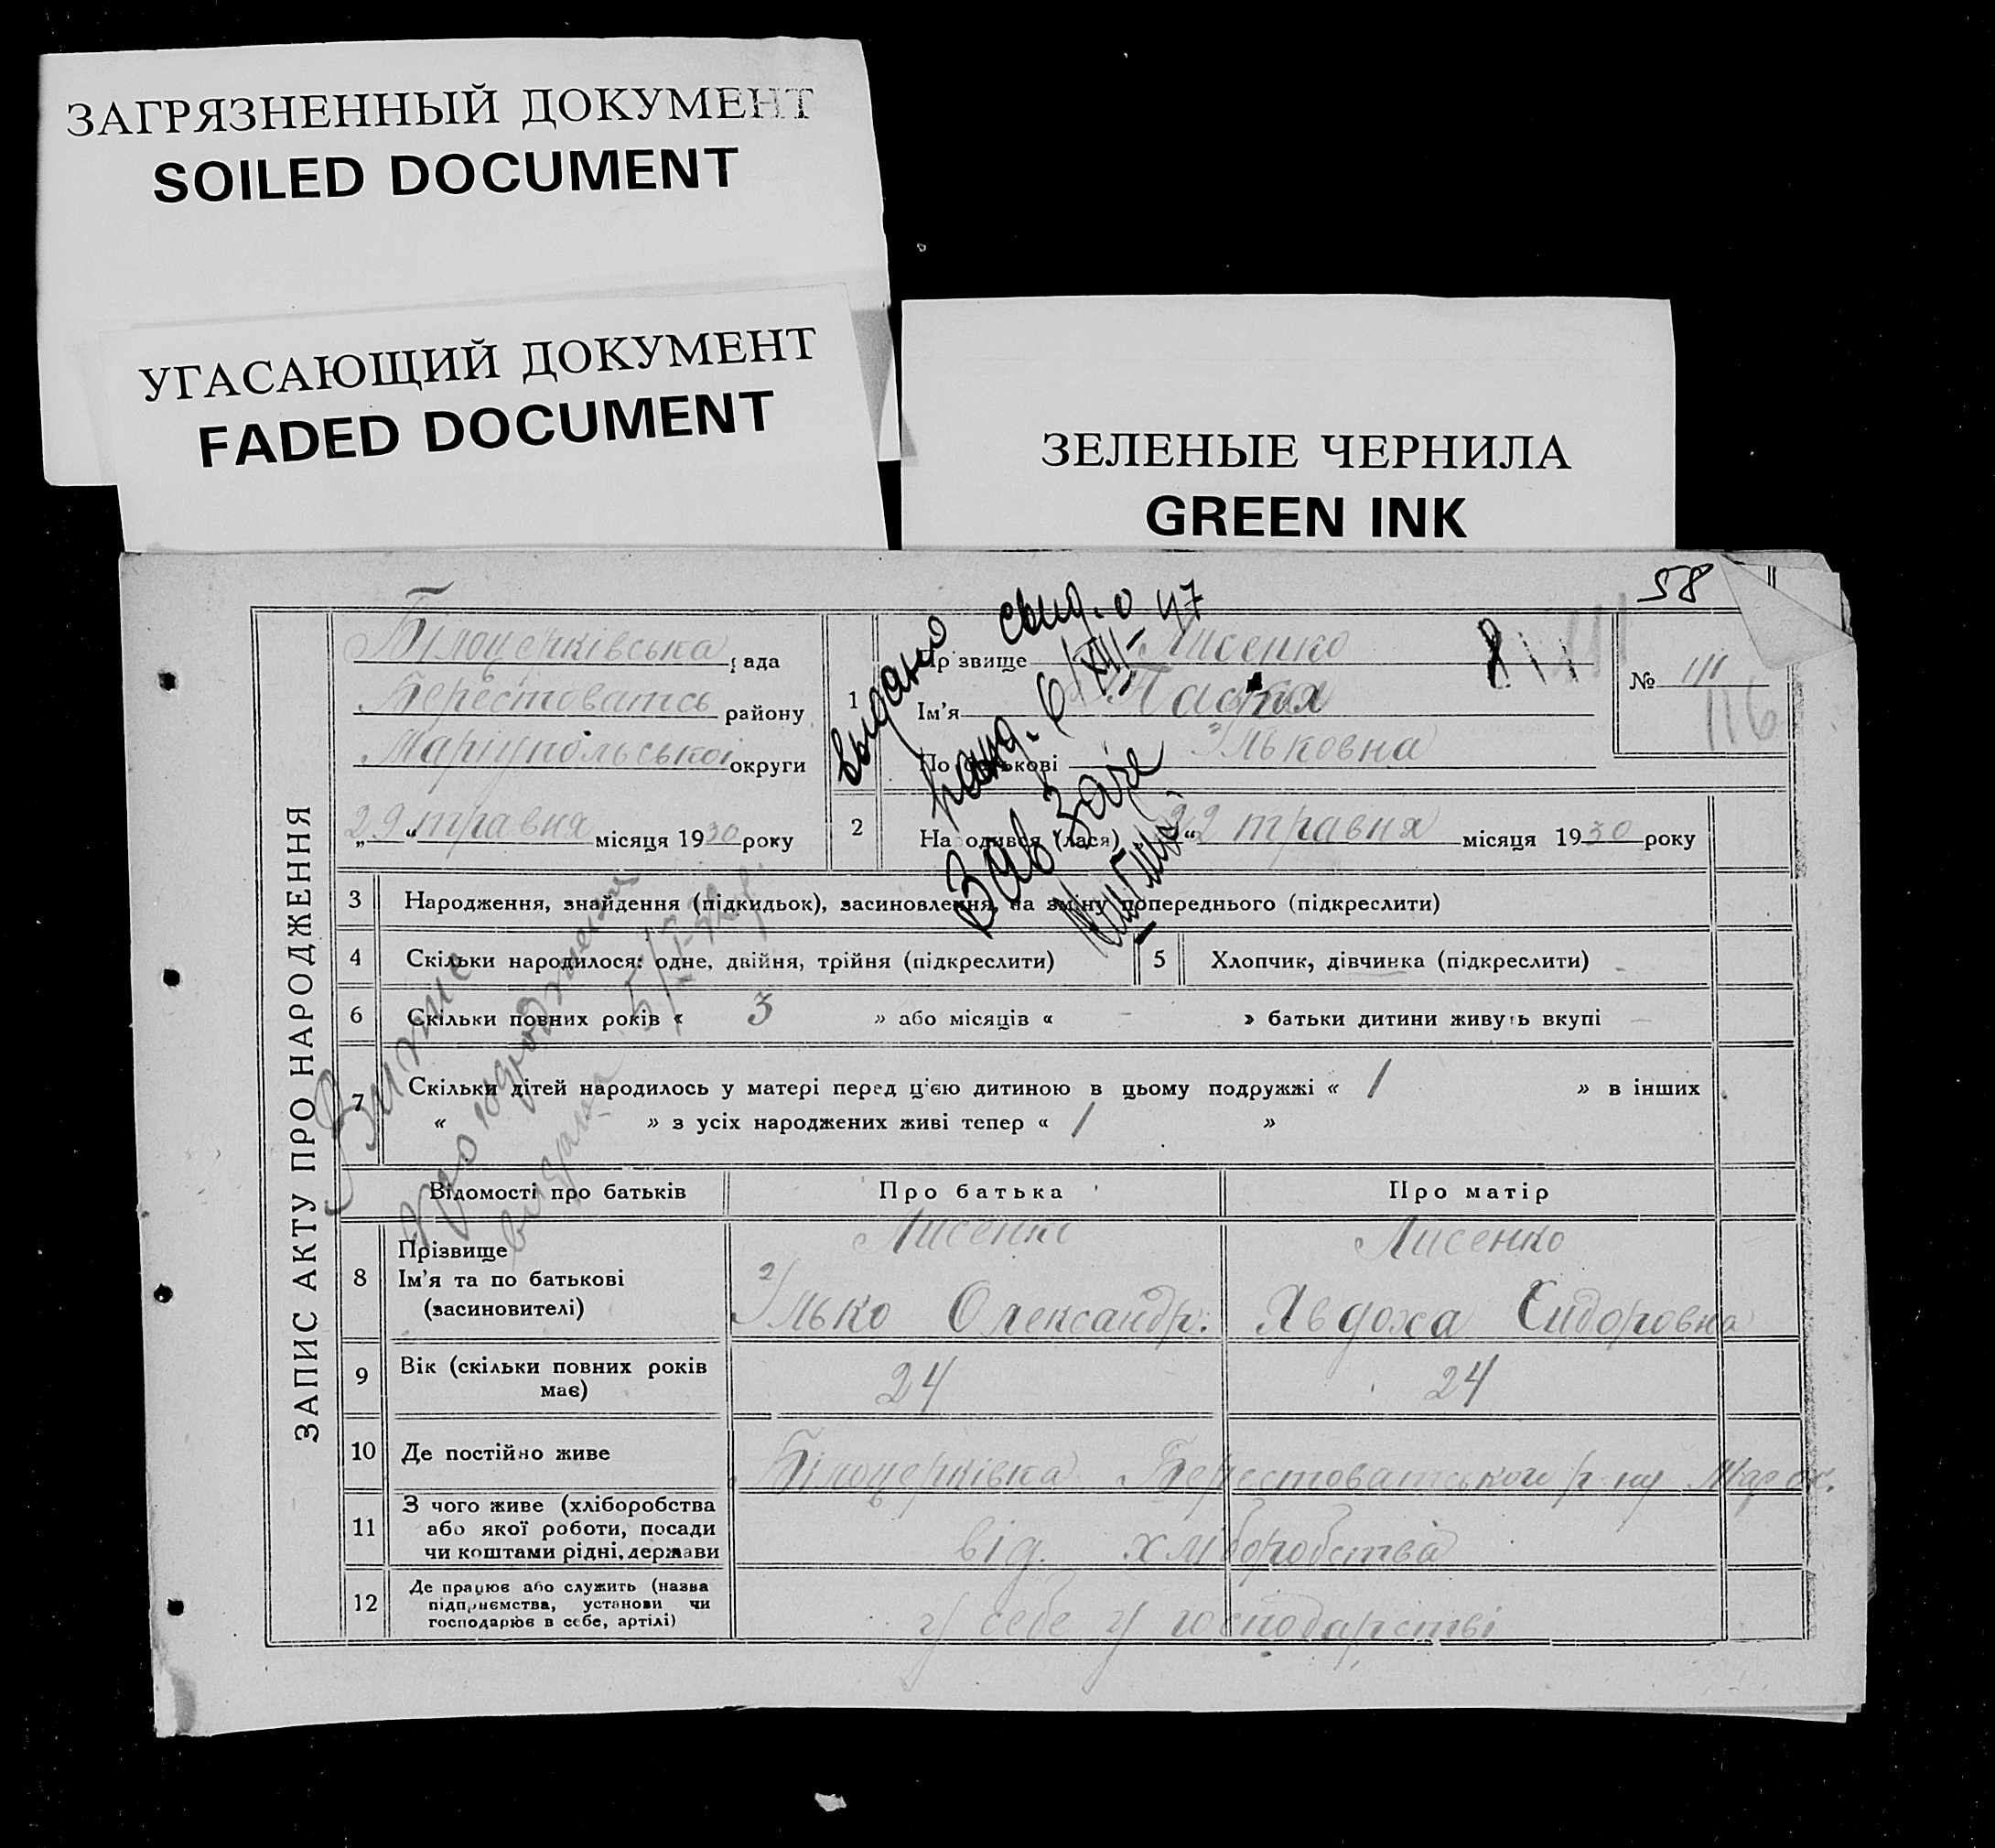 ЗАГРЯЗНЕННЫЙ ДОКУМЕНТ
SOILED DOCUMENT
УГАСАЮЩИЙ ДОКУМЕНТ
FADED DOCUMENT
ЗЕЛЕНЫЕ ЧЕРНИЛА
GREEN INK
58
ЗАПИС АКТУ ПРО НАРОДЖЕННЯ
Білоцерківська рада
Берестоватсь району
Маріупольської округи
„29“ травня місяця 1930 року
выдано свид. о
рожд. 6/XII-47
Зав Загс
1 Прізвище Лисенко
Ім’я
По батькові Ільковна
№ 111
116
2 Народився (лася) „22“ травня місяця 1930 року
3 Народження, знайдення (підкидьок), засиновлення, на зміну попереднього (підкреслити)
4 Скільки народилося: одне, двійня, трійня (підкреслити)
5 Хлопчик, дівчинка (підкреслити)
6 Скільки повних років « 3 » або місяців « – » батьки дитини живуть вкупі
7 Скільки дітей народилось у матері перед цією дитиною в цьому подружжі « 1 » в інших
« » з усіх народжених живі тепер « 1 »
Витяг
про народження
видана 5/I
Відомості про батьків Про батька Про матір
8 Прізвище Лисенко Лисенко
Ім’я та по батькові
(засиновителі) Ілько Олександр. Явдоха Сидоровна
9 Вік (скільки повних років
має) 24 24
10 Де постійно живе Білоцерківка Берестоватського р-ну Мар ок.
11 З чого живе (хліборобства
або якої роботи, посади
чи коштами рідні, держави від. хліборобства
12 Де працює або служить (назва
підприємства, установи чи
господарює в себе, артілі) у себе у господарстві